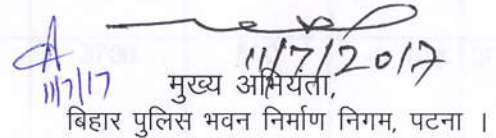 11/7/2017
11/7/17
मुख्य अभियंता,
बिहार पुलिस भवन निर्माण निगम, पटना ।